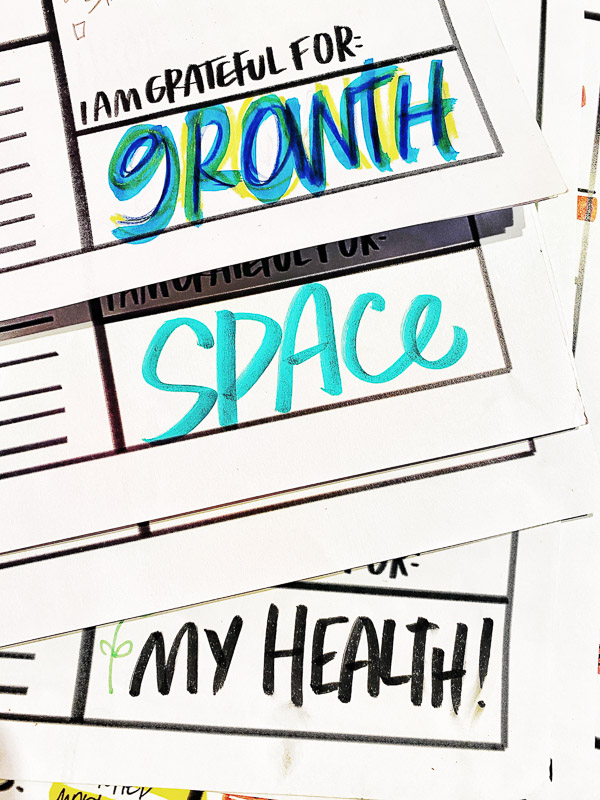 I AM GRATEFUL FOR:
gROWTH
I AM GRATEFUL FOR:
SPACe
FOR:
MY HEALTH!